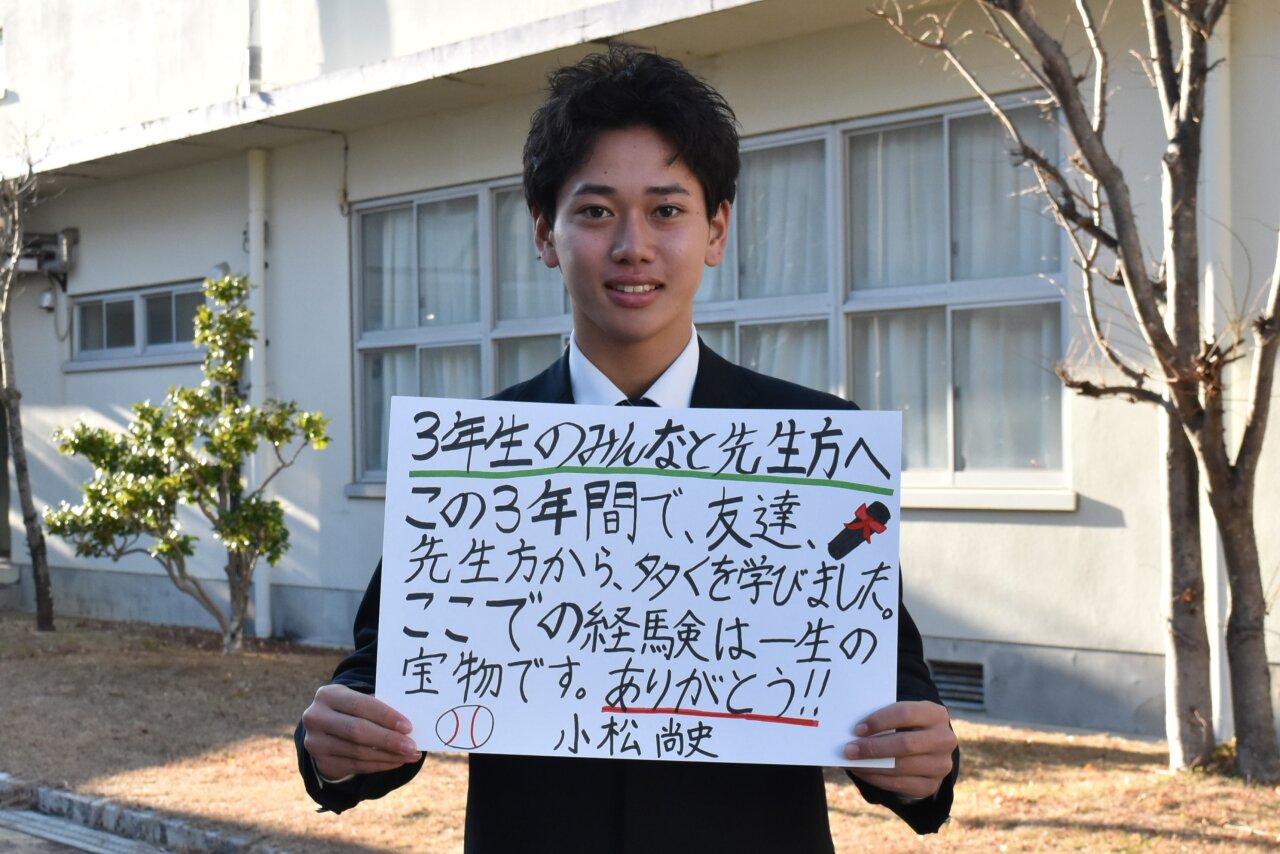 3年生のみんなと先生方へ
この3年間で、友達、
先生方から、多くを学びました。
ここでの経験は一生の
宝物です。ありがとう!!
小松 尚史